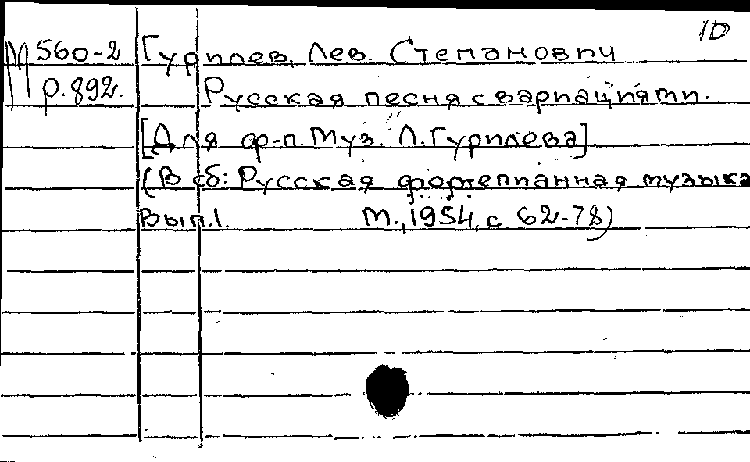 1D
М 560-2 Гурилев, Лев Степанович
р.892. Русская песня с вариациями.
[Для ф-п. Муз. Л. Гурилева]
(В сб: Русская фортепианная музыка
Вып.1. М., 1954, с 62-78)